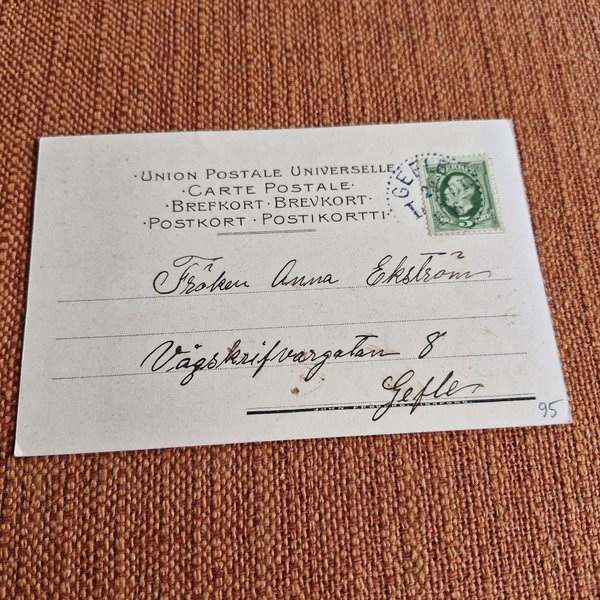 ·UNION POSTALE UNIVERSELLE
·CARTE POSTALE·
·BREFKORT·BREVKORT·
·POSTKORT·POSTIKORTTI·
GEFLE
5
Fröken Anna Ekström
Vågskrifvargatan 8
Gefle
95